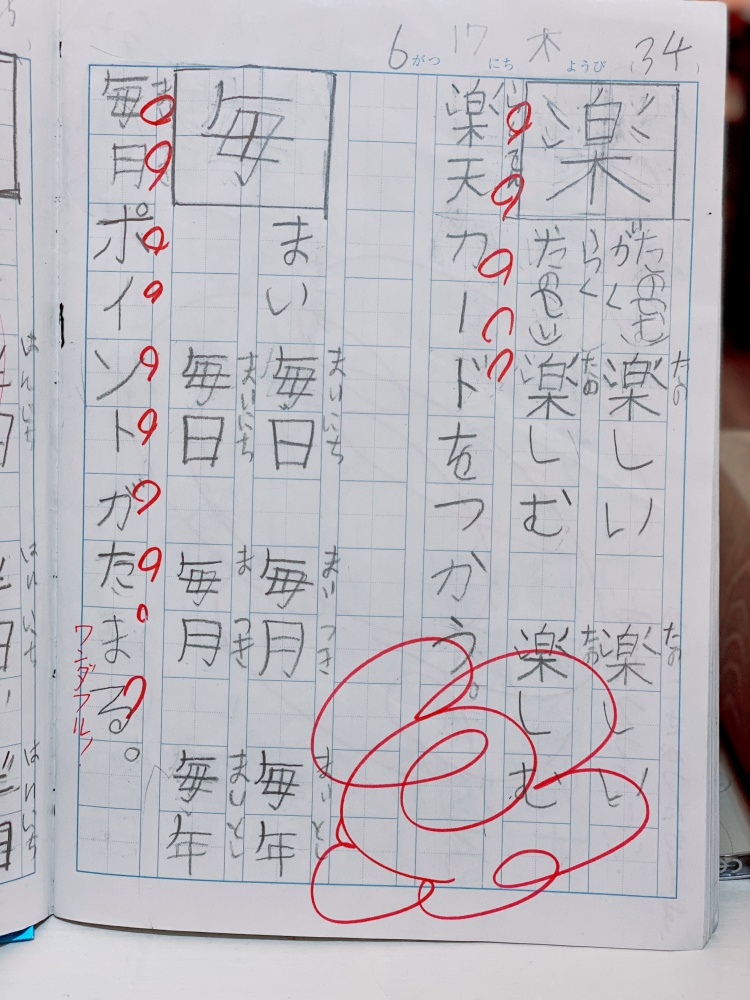 6がつ 17にち 木ようび (34)
楽
たのしむ
がく
らく
たのしい
楽しい 楽しい
たの たの
楽しむ 楽しむ
たの たの
楽天カードをつかう。
毎
まい
毎日 毎月 毎年
まいにち まいつき まいとし
毎日 毎月 毎年
まいにち まいとし
毎月ポイントガたまる。
ワンダフル!